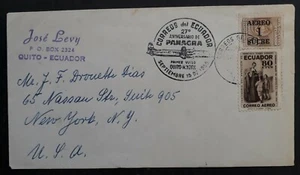 José Levy
P. O. BOX 2324
QUITO - ECUADOR
CORREOS del ECUADOR
27º
ANIVERSARIO DE
PANAGRA
PRIMER VUELO
QUITO-N.YORK
SEPTIEMBRE 13 DE
AEREO
1
SUCRE
ECUADOR
80
CORREO AEREO
Mr. J. F. Drouette Dias
65 Nassau Str., Suite 905
New York, N. Y.
U. S. A.